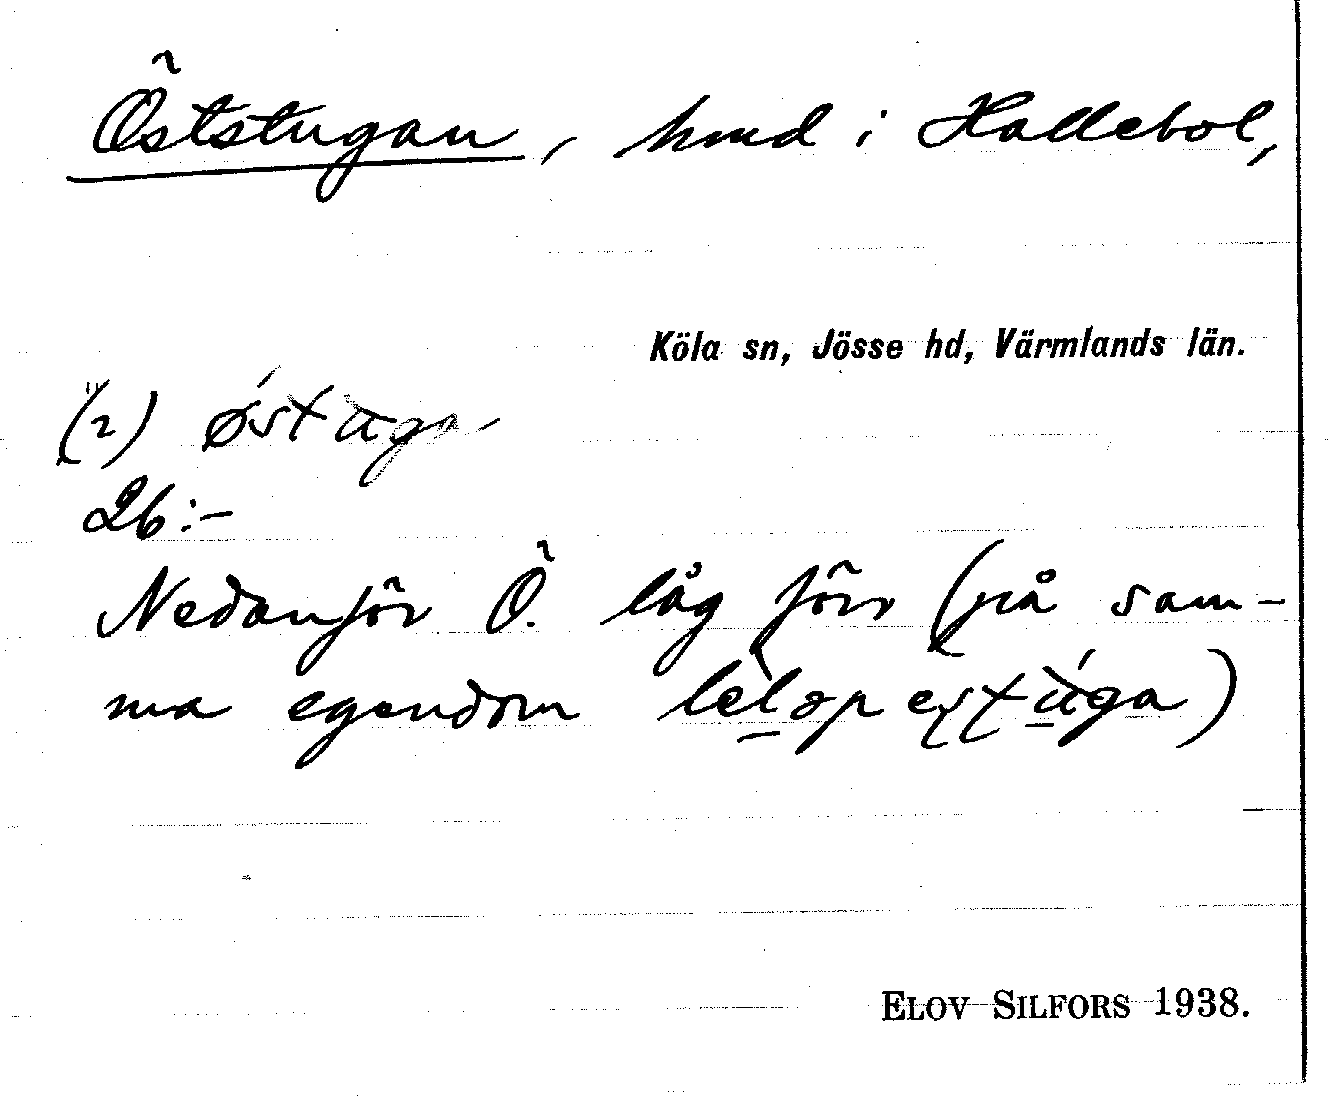 Öststugan, hmd i Hallebol,
Köla sn, Jösse hd, Värmlands län.
(2) østuga
26:-
Nedanför Ö. låg förr (på sam-
ma egendom
ELOV SILFORS 1938.